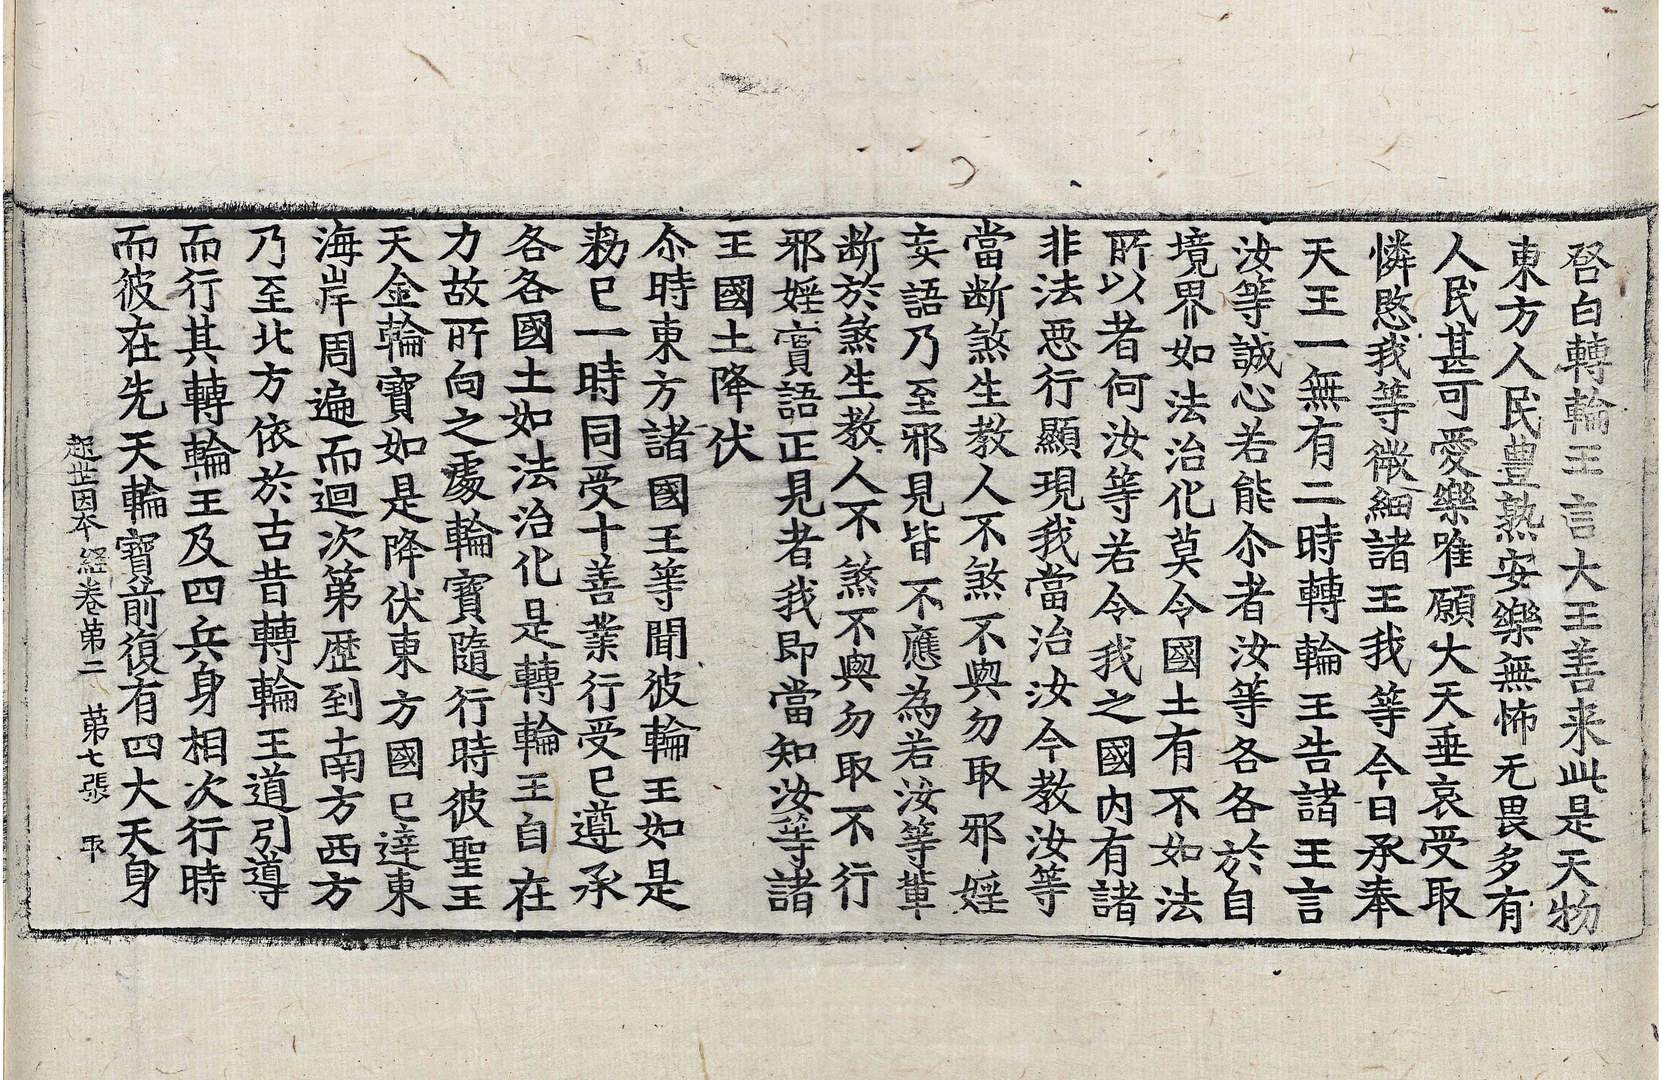 啓白轉輪王言大王善来此是天物
東方人民豊熟安樂無怖无畏多有
人民甚可愛樂唯願大天垂哀受取
憐愍我等微細諸王我等今日承奉
天王一無有二時轉輪王告諸王言
汝等誠心若能尒者汝等各各於自
境界如法治化莫令國土有不如法
所以者何汝等若令我之國内有諸
非法惡行顯現我當治汝今教汝等
當断煞生教人不煞不與勿取邪婬
妄語乃至邪見皆不應為若汝等輩
断於煞生教人不煞不與勿取不行
邪婬實語正見者我即當知汝等諸
王國土降伏
尒時東方諸國王等聞彼輪王如是
勑已一時同受十善業行受已遵承
各各國土如法治化是轉輪王自在
力故所向之處輪寶隨行時彼聖王
天金輪寶如是降伏東方國已達東
海岸周遍而迴次第歷到南方西方
乃至北方依於古昔轉輪王道引導
而行其轉輪王及四兵身相次行時
而彼在先天輪寶前復有四大天身
起世因本経卷第二 第七張 取